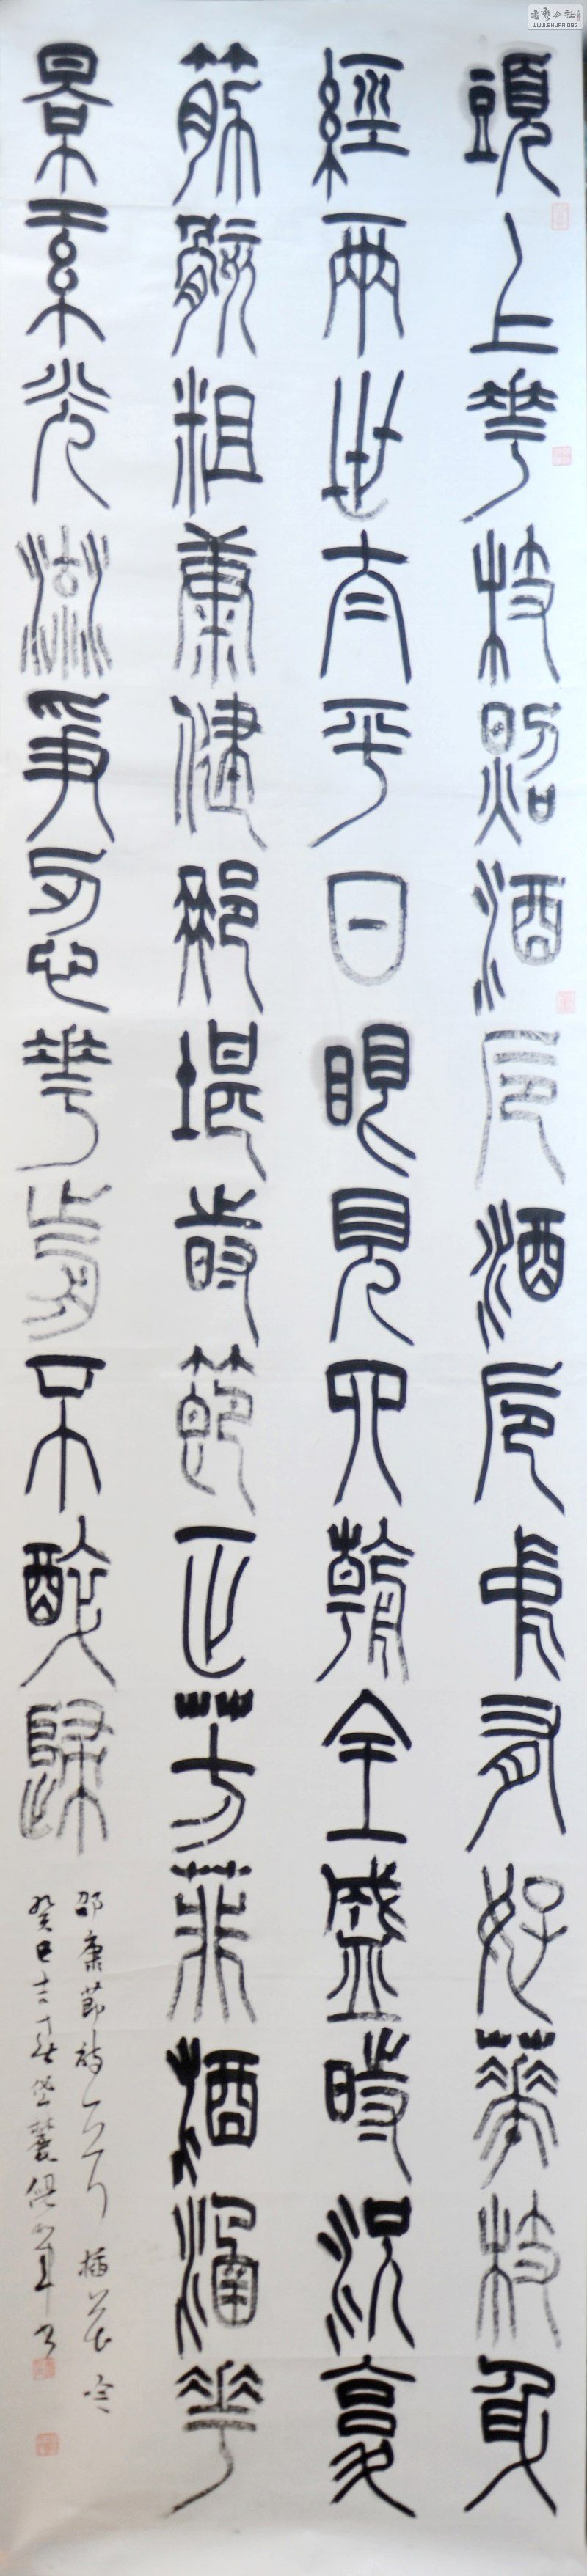 頭上華枝照酒卮酒卮中有好華枝身
經兩世太平日眼見四朝全盛時況復
筋骸粗康健那堪時節正芳菲酒涵華
景紅光溜爭忍華前不醉歸
邵康節詩一首 插花吟
癸巳
WWW.SHUFA.ORG